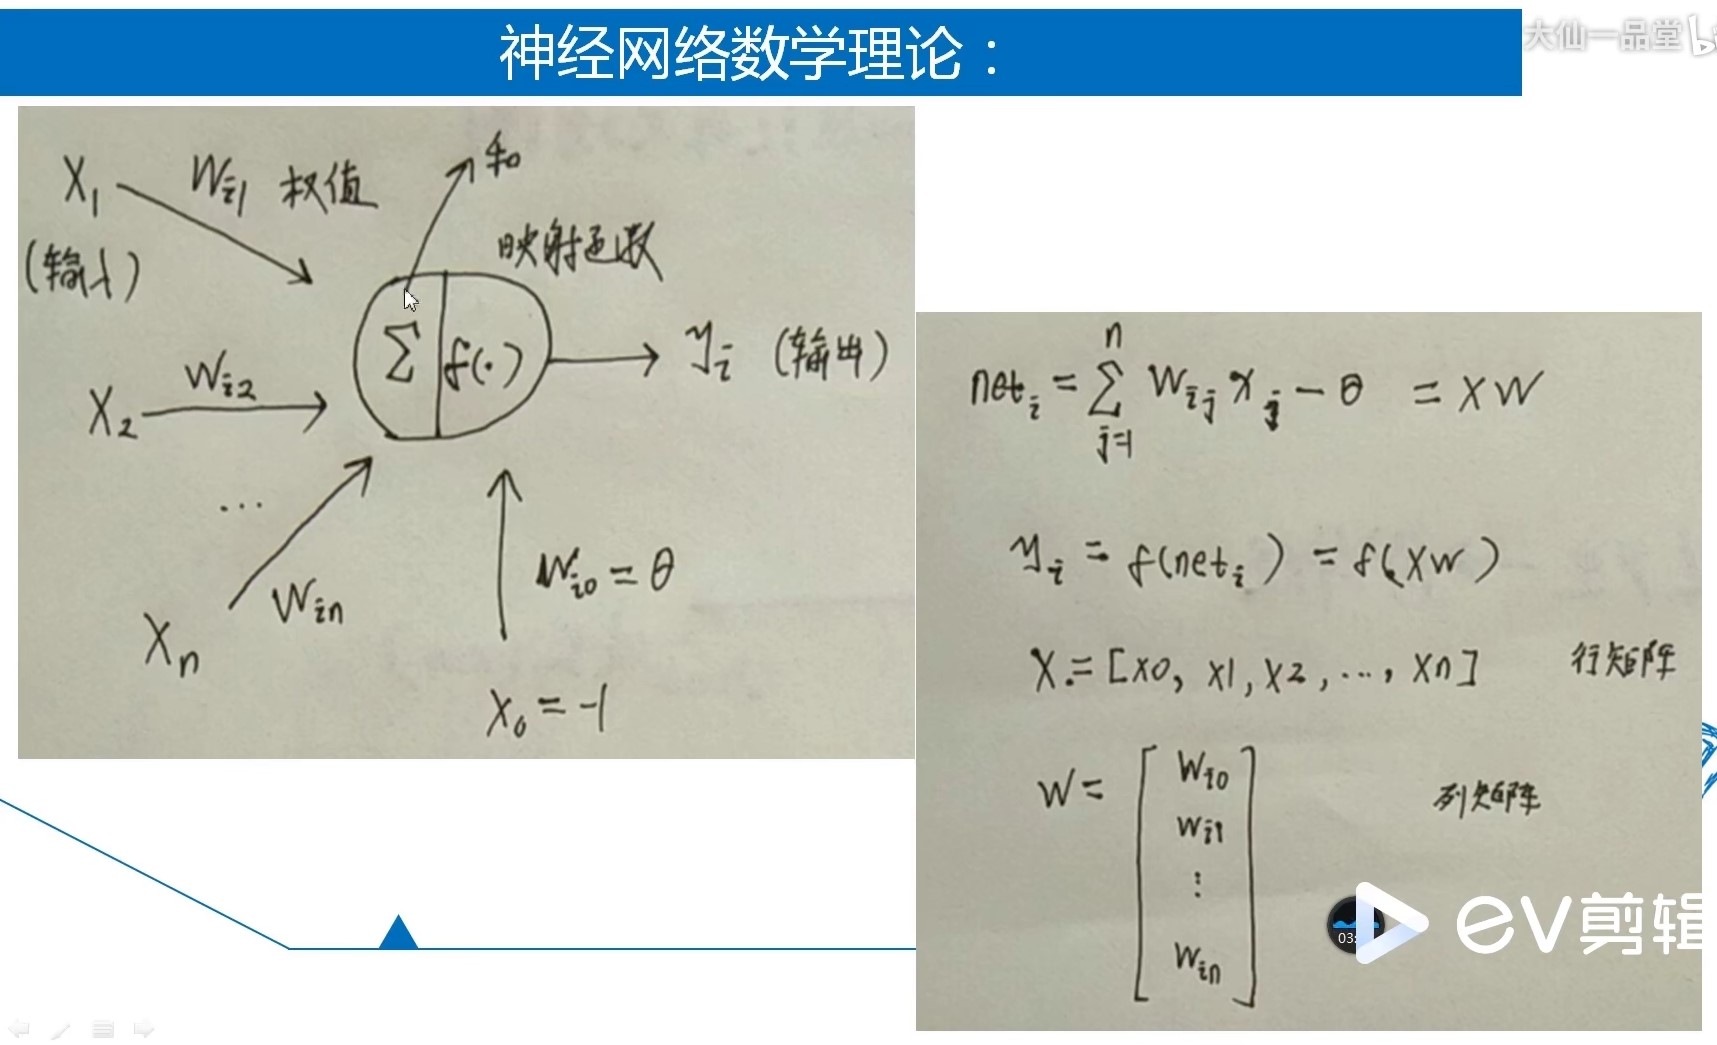 神经网络数学理论：
大仙一品堂
X₁ Wi1 权值 和
(输入) 映射函数
Σ f(·) yi (输出)
X₂ Wi2
...
Xn Win Wi0 = θ
X₀ = -1
neti = Σ Wij xj - θ = XW
n
j=1
yi = f(neti) = f(XW)
X = [x0, x1, x2, ..., xn] 行矩阵
W = [Wi0
Wi1
⋮
Win] 列矩阵
03:
EV剪辑